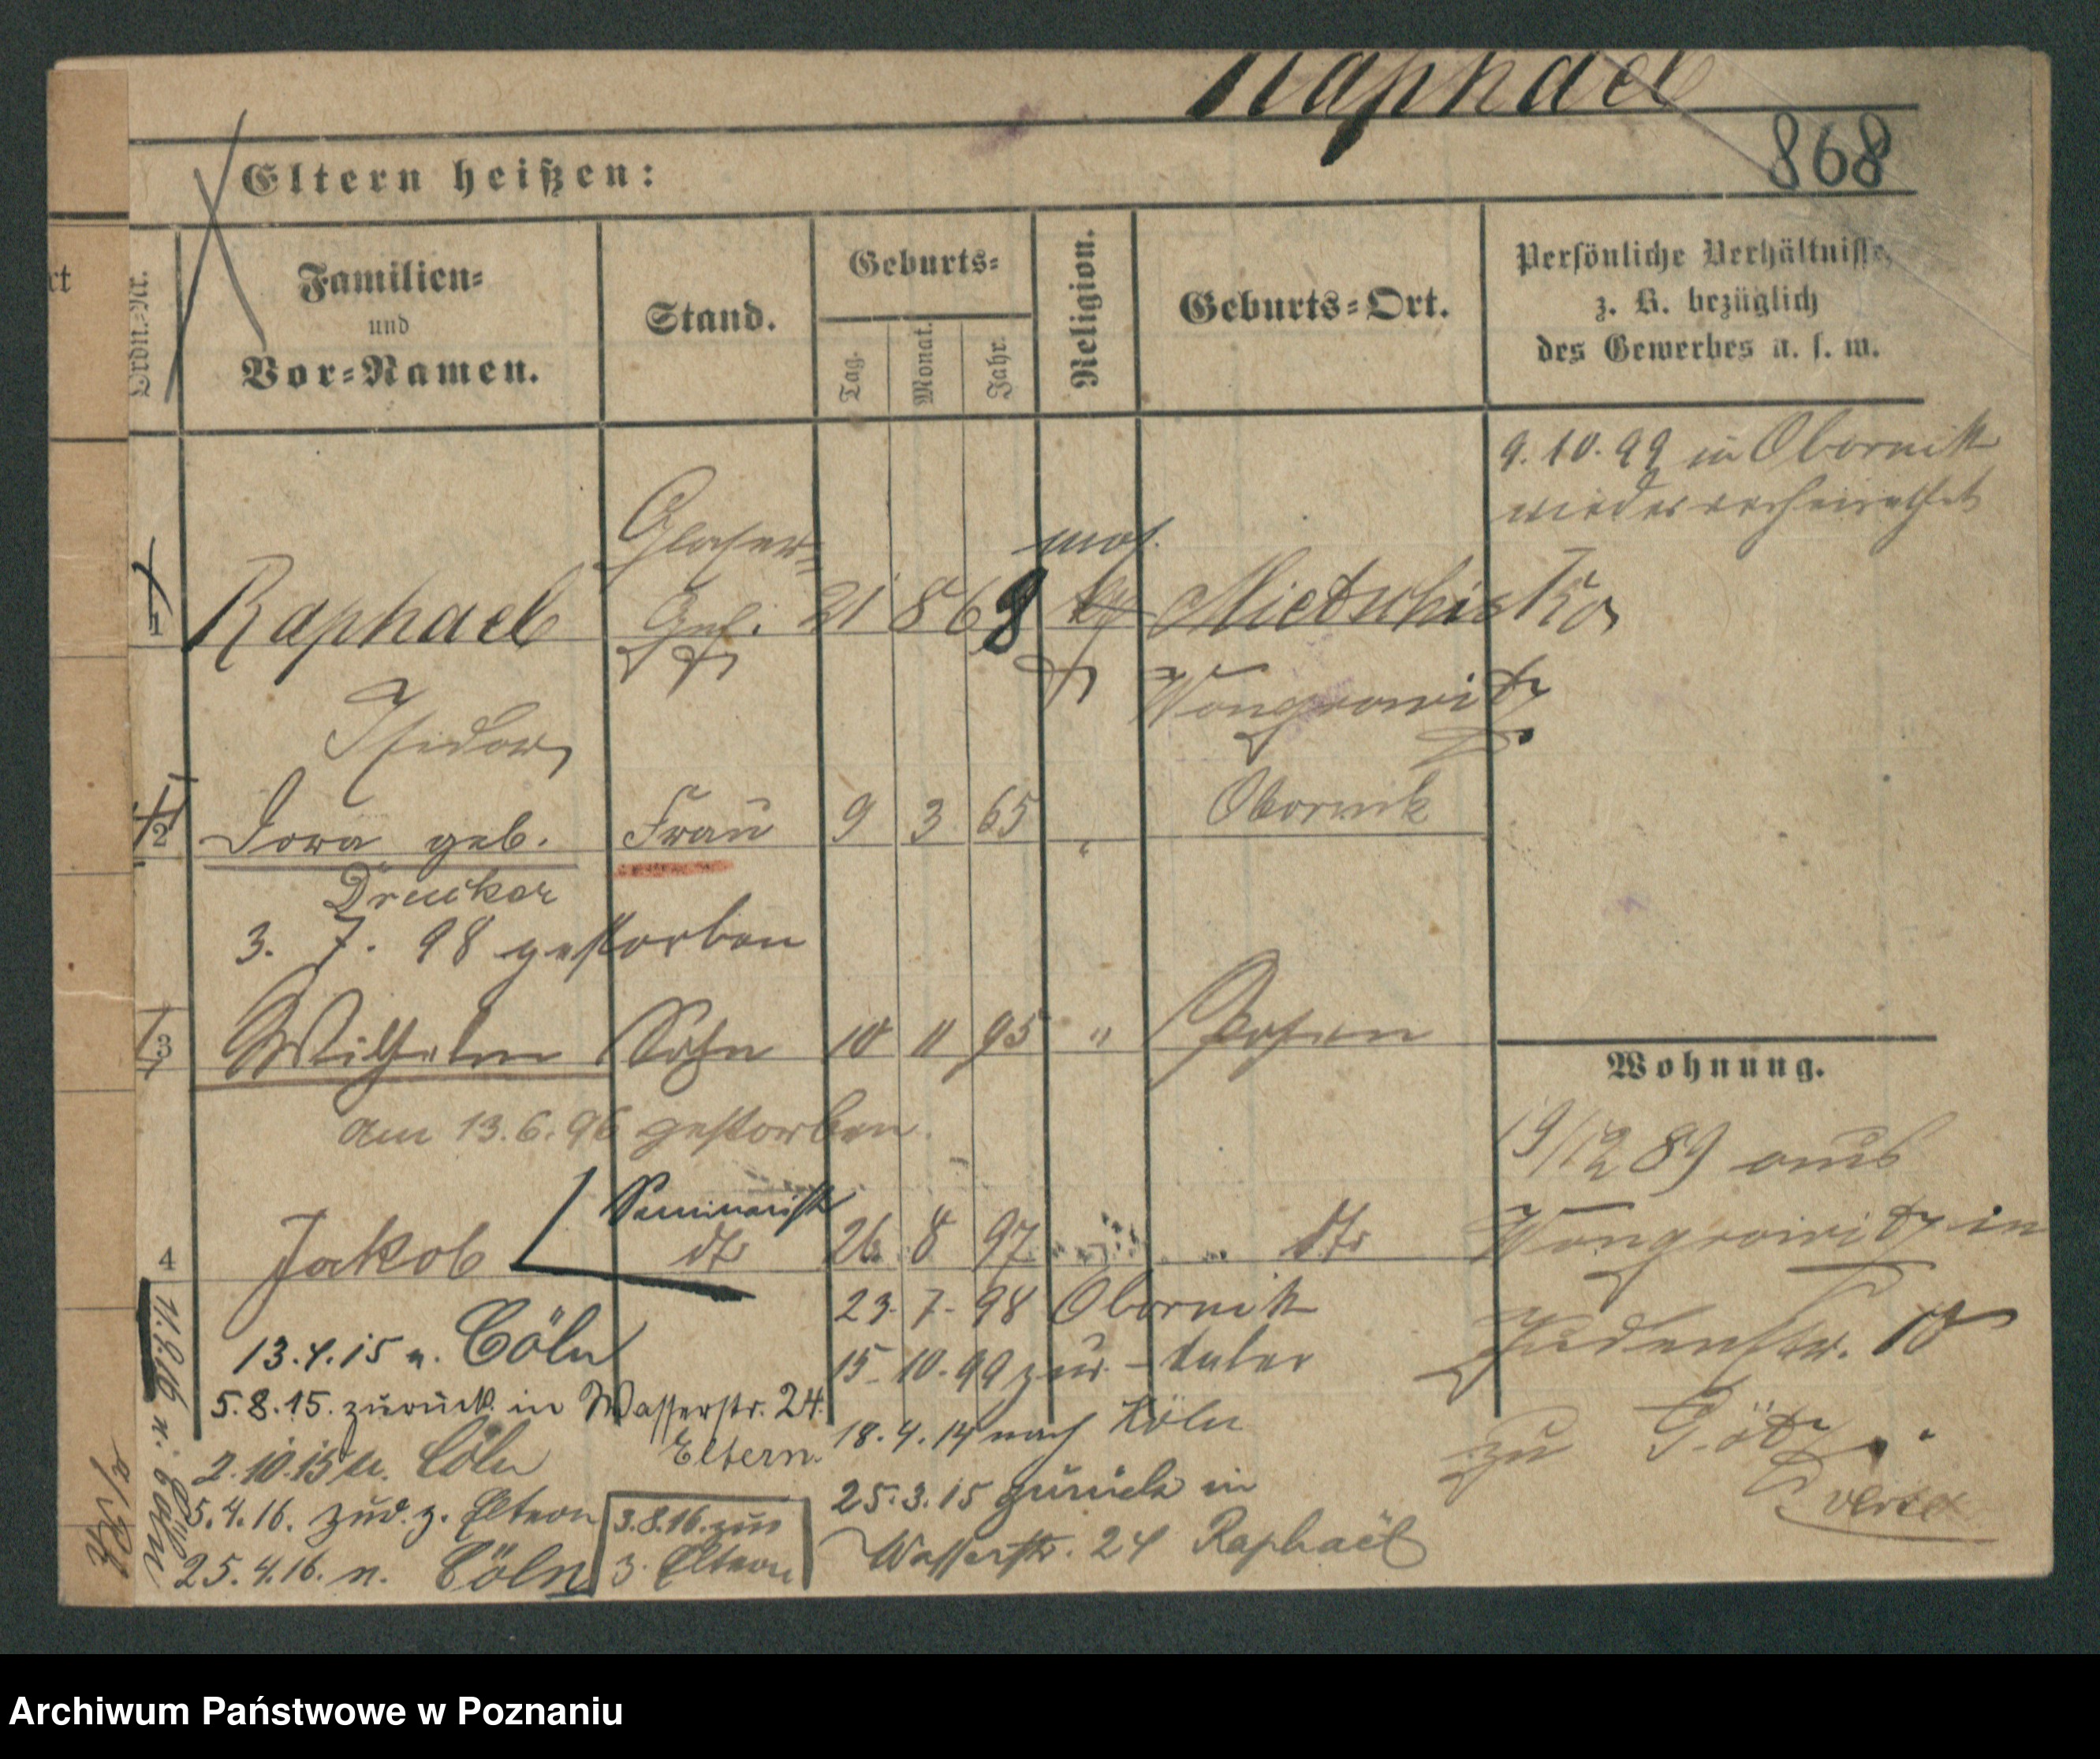 Raphael
868
Eltern heißen:
rt
Ordn.-Nr.
Familien-
und
Vor-Namen.
Stand.
Geburts-
Tag.
Monat.
Jahr.
Religion.
Geburts-Ort.
Persönliche Verhältnisse,
z. B. bezüglich
des Gewerbes u. s. w.
9. 10. 99 in Obornik
wieder verheirathet
Glaser-
mos.
1 Raphael Ges. 21 8 68 Mietschisko,
Wongrowitz
Isidor,
2 Dora geb. Frau 9 3 65 " Obornik
Drucker
3. 7. 98 gestorben
3 Wilhelm Sohn 10 11 95 " Posen
Wohnung.
am 13.6.96 gestorben.
19/12 89 aus
Seminarist
4 Jakob dto 26. 8 97 dto
Wongrowitz in
23. 7. 98 Obornik
Judenstr. 10
13.4.15 n. Cöln
15. 10. 99 zur.
5.8.15. zurück in Wasserstr. 24.
Eltern.
18.4.14 nach Köln
zu Götz.
2.10.15 n. Cöln
25.3.15 zurück in
verte
5.4.16. zur. z. Eltern
3.8.16. zur.
z. Eltern
Wasserstr. 24 Raphael
25.4.16. n. Cöln
n. Cöln
Archiwum Państwowe w Poznaniu